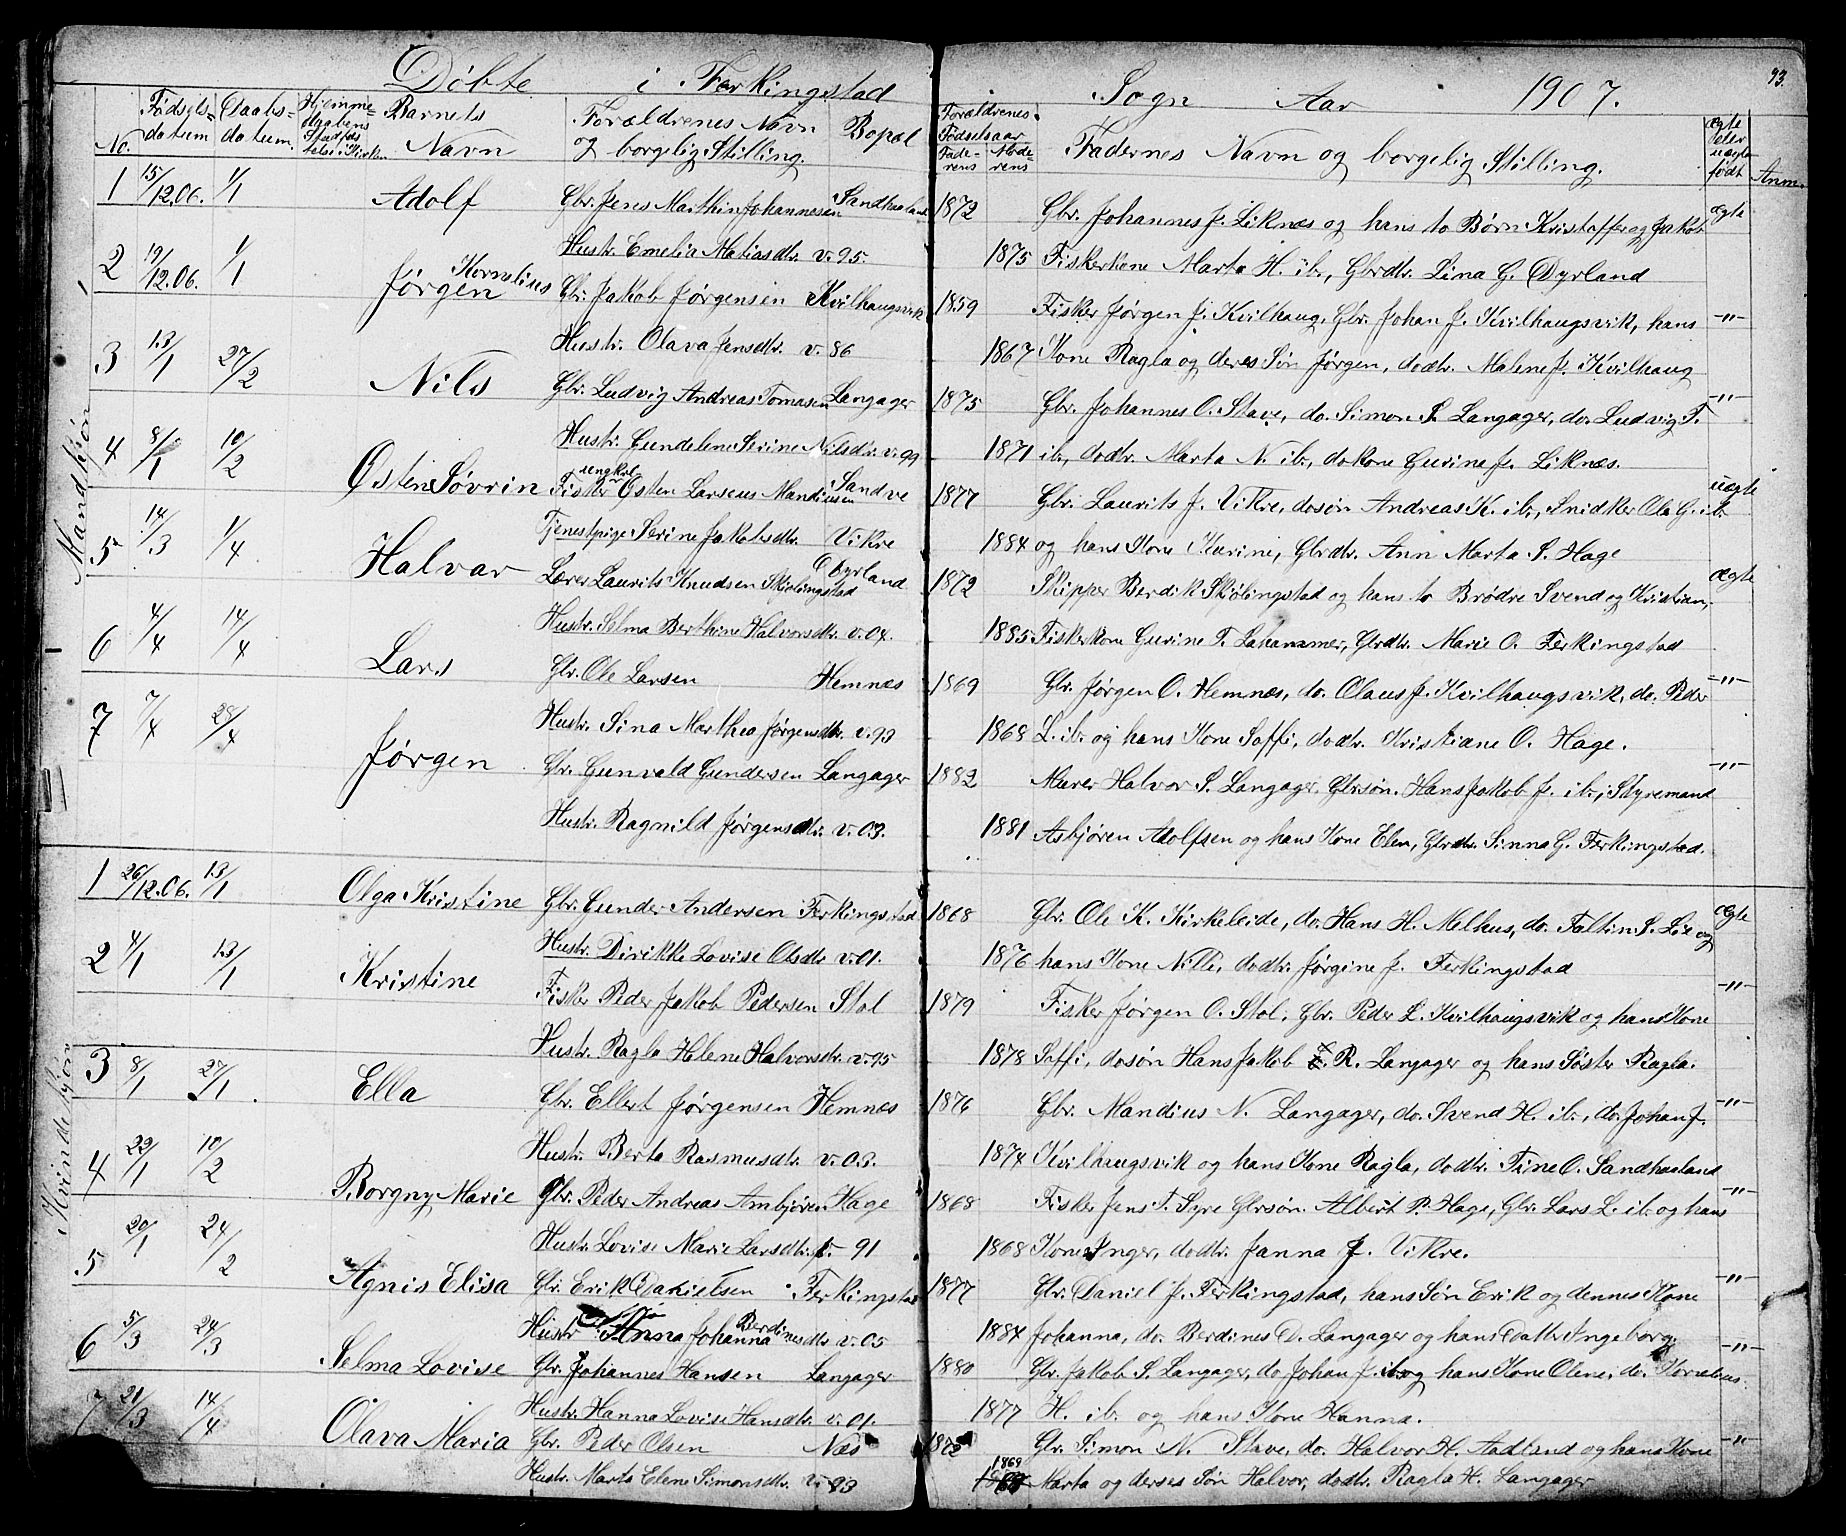 Döbte i Ferkingstad Sogn Aar 1907. 93.
No. Fødsels-datum Daabs-datum. Hjemme-daabens Stadfæstelse i Kirken Barnets Navn Forældrenes Navn og borgelig Stilling. Bopæl Forældrenes Fødselsaar Faderens Moderens Fadernes Navn og borgelig Stilling. Ægte eller uægte født Anm.
Mandkjøn
1 15/12.06. 1/1 Adolf Gbr. Jens Marthin Johannesen Sandhaaland 1872 Gbr. Johannes J. Liknes og hans to Børn Kristoffer og Jakob Ægte
Hustr. Emelia Matiasdtr. v. 95. 1875 Fiskerkone Marta H. ib., Gbrdtr. Lina G. Dyrland
2 19/12.06. 1/1 Jørgen Kornelius Gbr. Jakob Jørgensen Kvilhaugsvik 1859 Fisker Jørgen J. Kvilhaug, Gbr. Johan J. Kvilhaugsvik, hans -"-
Hustr. Olava Jensdtr. v. 86 1867 Kone Ragla og deres Søn Jørgen, dodtr. Malene J. Kvilhaug
3 13/1 27/2 Nils Gbr. Ludvig Andreas Tomasen Langager 1875 Gbr. Johannes O. Stave, do. Simon S. Langager, do. Ludvig T. -"-
Hustr. Gundeline Serine Nilsdtr. v. 99 1871 ib., dodtr. Marta N. ib., do kone Gurine J. Liknes.
4 8/1 10/2 Østen Søvrin Fisker ungkrl. Østen Larseus Mandiusen Sandve 1877 Gbr. Laurits J. Vikre, dosøn Andreas K. ib., Snidker Ola G. ib. uægte
Tjenestpige Serine Jakobsdtr. Vikre 1884 og hans Kone Karine, Gbrdtr. Ann Marta S. Hage
5 14/3 1/4 Halvar Lærer Laurits Knudsen Skjølingstad Dyrland 1872 Skipper Berdik Skjølingstad og hans to Brødre Svend og Kristian, Ægte
Hustr. Selma Berthine Halvorsdtr. v. 04. 1885 Fiskerkone Gurine T. Lahammer, Gbrdtr. Marie O. Ferkingstad
6 4/4 14/4 Lars Gbr. Ole Larsen Hemnes 1869 Gbr. Jørgen O. Hemnes, do. Olaus J. Kvilhaugsvik, do. Peder -"-
Hustr. Sina Marthea Jørgensdtr. v. 93 1868 L. ib. og hans Kone Saffi, dodtr. Kristiane O. Hage.
7 7/4 28/4 Jørgen Gbr. Gunvald Gundersen Langager 1882 Murer Halvor S. Langager, Gbrsøn. Hans Jakob J. ib., Styremand -"-
Hustr. Ragnild Jørgensdtr. v. 03. 1881 Asbjøren Adolfsen og hans Kone Elen, Gbrdtr. Sinna G. Ferkingstad.
Kvindekjøn
1 26/12.06. 13/1 Olga Kristine Gbr. Gunder Andersen Ferkingstad 1868 Gbr. Ole K. Kirkeleide, do. Hans H. Melhus, do. Faltin S. Lie og Ægte
Hustr. Dirikke Lovise Olsdtr v. 01. 1876 hans Kone Nille, dodtr. Jørgine J. Ferkingstad
2 4/1 13/1 Kristine Fisker Peder Jakob Pedersen Stol 1879 Fisker Jørgen O. Stol, Gbr. Peder L. Kvilhaugsvik og hans Kone -"-
Hustr. Ragla Helene Halvorsdtr. v. 95 1878 Saffi, dosøn Hans Jakob R. Langager og hans Søster Ragla.
3 8/1 27/1 Ella Gbr. Ellert Jørgensen Hemnes 1876 Gbr. Mandius N. Langager, do. Svend H. ib., do. Johan J. -"-
Hustr. Berta Rasmusdtr. v. 03. 1874 Kvilhaugsvik og hans Kone Ragla, dodtr. Tine O. Sandhaaland
4 22/1 10/2 Borgny Marie Gbr. Peder Andreas Ambjøren Hage 1868 Fisker Jens T. Syre Gbrsøn. Albert P. Hage, Gbr. Lars L. ib. og hans -"-
Hustr. Lovise Marie Larsdtr. v. 91 1868 Kone Inger, dodtr. Janna J. Vikre.
5 20/1 24/2 Agnis Elisa Gbr. Erik Danielsen Ferkingstad 1877 Gbr. Daniel J. Ferkingstad, hans Søn Erik og dennes Kone -"-
Hustr Anna Johanna Berdinesdtr v. 05 1884 Johanna, do. Berdines D. Langager og hans Datter Ingeborg.
6 5/3 24/3 Selma Lovise Gbr. Johannes Hansen Langager 1880 Gbr. Jakob S. Langager, do Johan J. ib. og hans Kone Olene, do. Kornelius -"-
Hustr. Hanna Lovise Hansdtr. v. 01. 1877 H. ib. og hans Kone Hanna.
7 21/3 14/4 Olava Maria Gbr. Peder Olsen Næs 1872 Gbr. Simon N. Stave, do. Halvor H. Aadland og hans Kone -"-
Hustr. Marta Elene Simonsdtr. v. 93 1869 Marta og derses Søn Halvor, dodtr. Ragla H. Langager